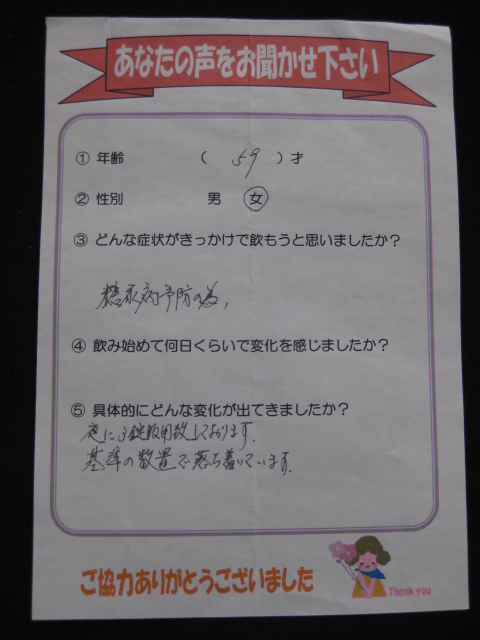 あなたの声をお聞かせ下さい
① 年齢 （ 59 ）才
② 性別 男 女
③ どんな症状がきっかけで飲もうと思いましたか？
糖尿病予防の為、
④ 飲み始めて何日くらいで変化を感じましたか？
⑤ 具体的にどんな変化が出てきましたか？
夜に3錠服用致しております。
基準の数置で落ち着いています。
ご協力ありがとうございました
Thank you